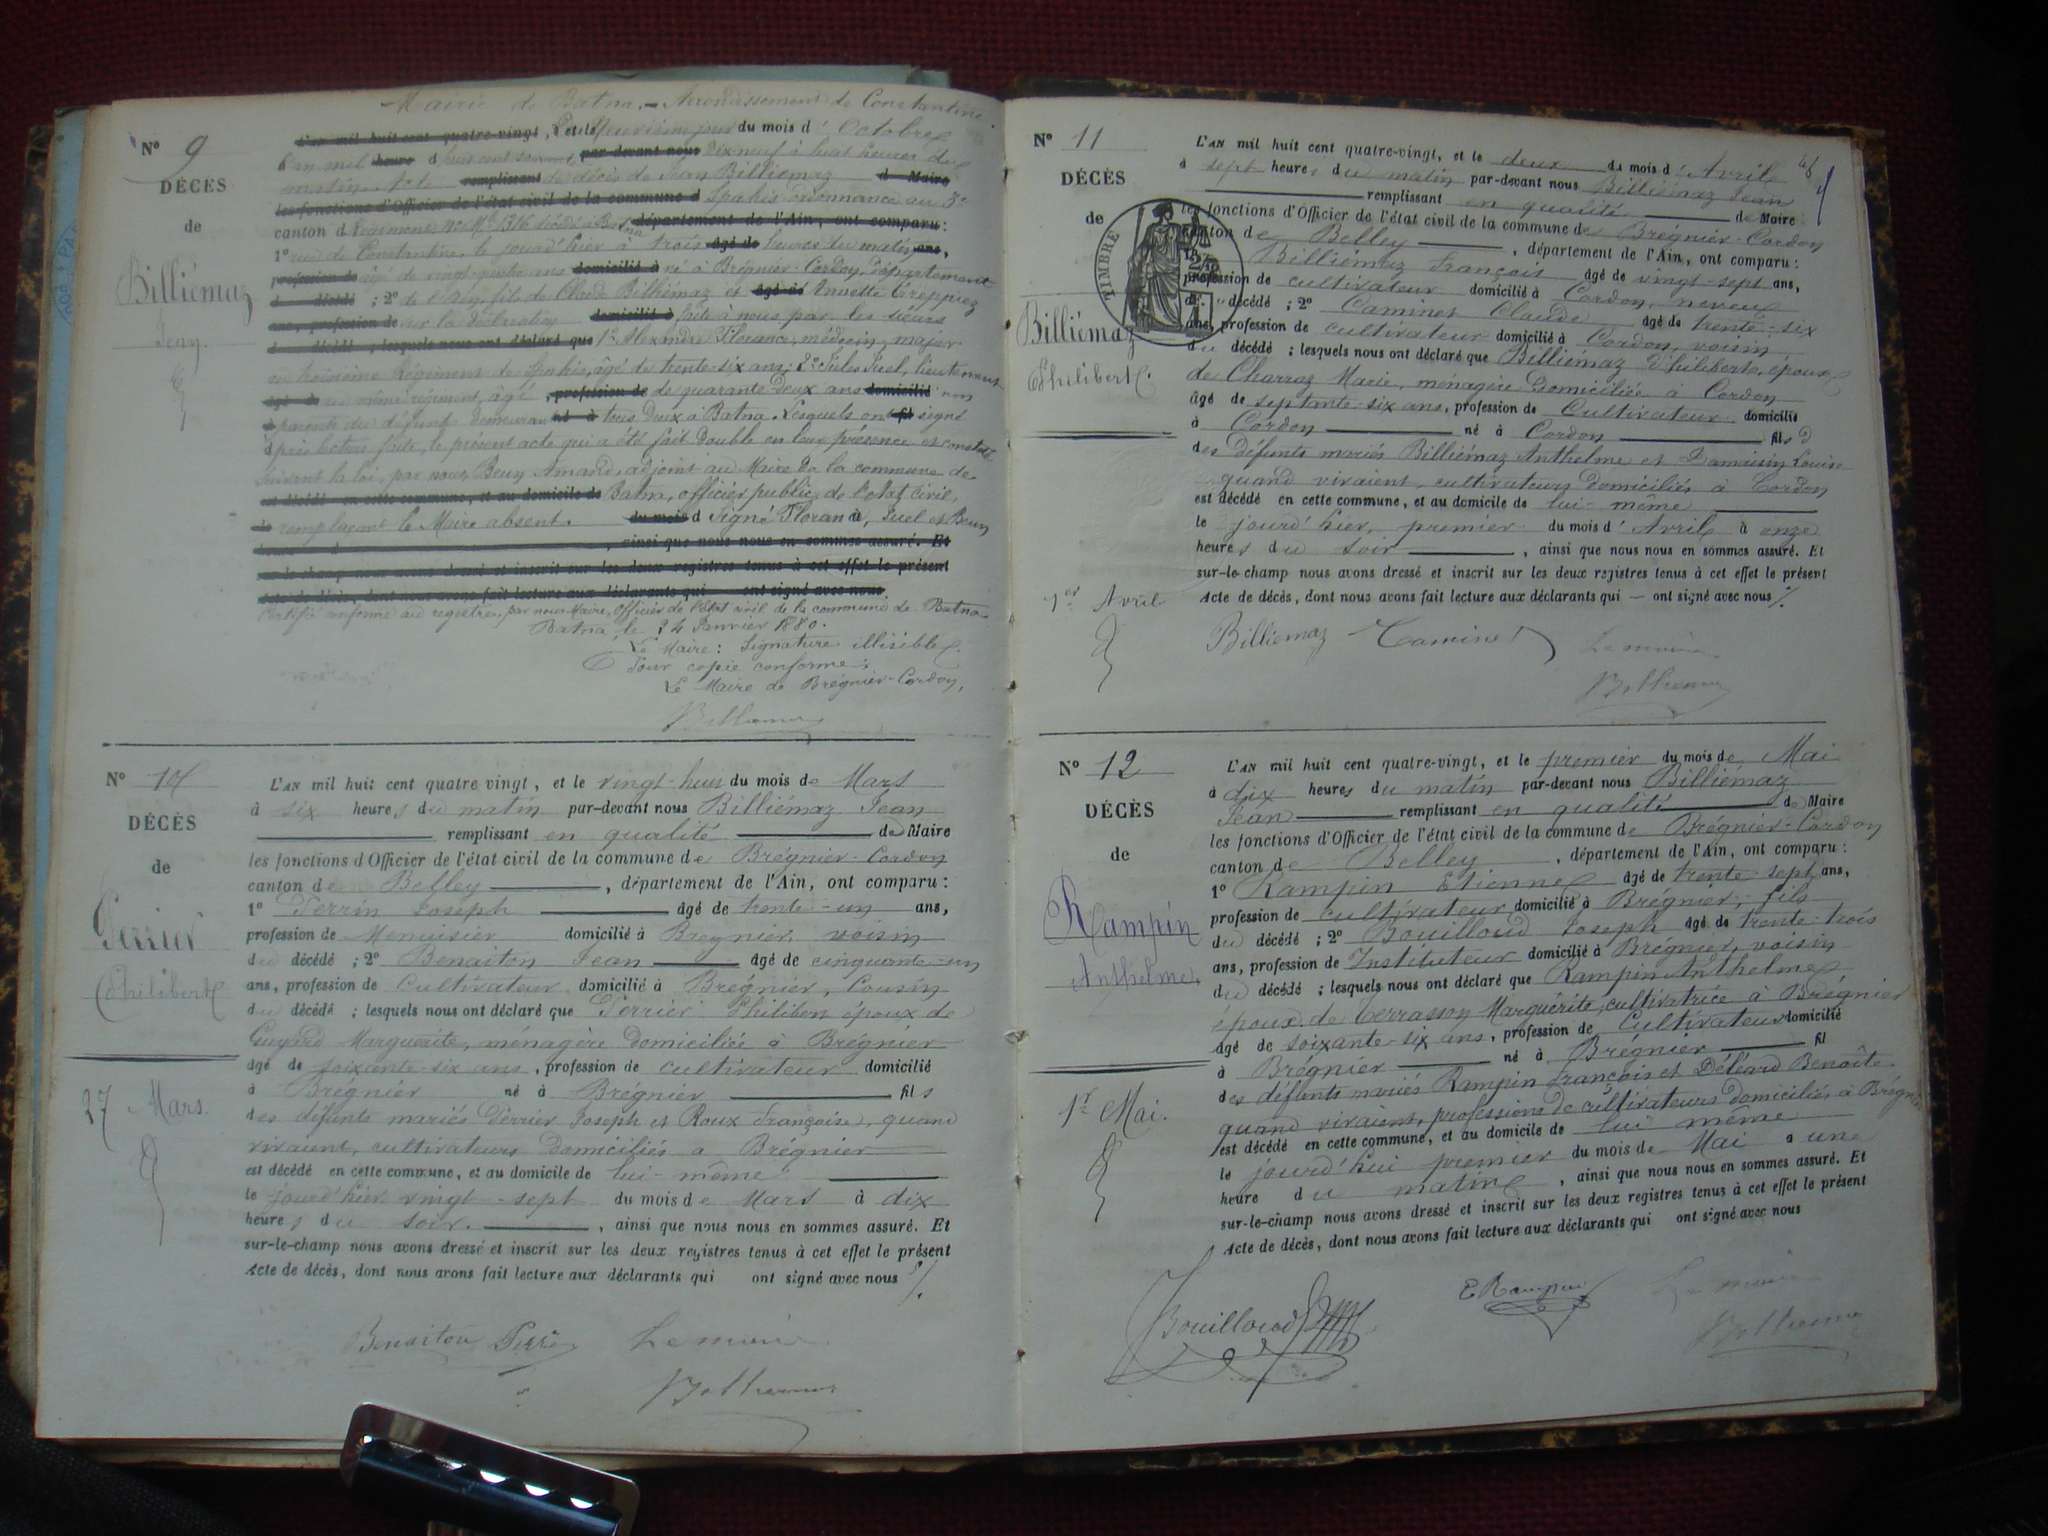 Mairie de Batna. — Arrondissement de Constantine.
N° 9
DÉCÈS
de
Billiémaz
Jean
L'an mil huit cent quatre-vingt, et le Neuvième jour du mois d'Octobre
L'an mil heure d huit cent soixante par-devant nous dix-neuf à huit heures du
matin. Acte remplissant de décès de Jean Billiémaz d Maire
les fonctions d'Officier de l'état civil de la commune d Spahis ordonnance au 3e
canton d Régiment N° Mle 1316 décédé à Batna département de l'Ain, ont comparu:
1° rue de Constantine, le jourd'hier à trois âgé de heures du matin ans,
profession de âgé de vingt-quatre ans domicilié à né à Brégnier-Cordon, Département
d décédé ; 2° de l'Ain, fils de Claude Billiémaz et âgé de Annette Greppiez
ans, profession de sur la déclaration domicilié à faite à nous par les sieurs
d décédé ; lesquels nous ont déclaré que 1° Alexandre Florance, médecin, major
au troisième Régiment de Spahis, âgé de trente-six ans; 2° Jules Juel, lieutenant
âgé de au même régiment, âgé profession de de quarante deux ans domicilié non
à parents du défunt demeurant né à tous deux à Batna. Lesquels ont fil signé
après lecture faite, le présent acte qui a été fait double en leur présence et constaté
suivant la loi, par nous, Beun Amand, adjoint au Maire de la commune de
est décédé en cette commune, et au domicile de Batna, officier public de l'état civil,
le remplaçant le Maire absent. du mois d Signé Floran à, Juel et Beun
, ainsi que nous nous en sommes assuré. Et
sur-le-champ nous avons dressé et inscrit sur les deux registres tenus à cet effet le présent
Acte de décès, dont nous avons fait lecture aux déclarants qui ont signé avec nous
Certifié conforme au registre, par nous Maire, Officier de l'État civil de la commune de Batna
Batna, le 24 Janvier 1880.
Le Maire: Signature illisible.
Pour copie conforme:
Le Maire de Brégnier-Cordon,
Billiemaz
N° 10
DÉCÈS
de
Perrier
Philibert
27 Mars.
L'AN mil huit cent quatre vingt, et le vingt-huit du mois de Mars
à six heures du matin par-devant nous Billiémaz Jean
remplissant en qualité de Maire
les fonctions d'Officier de l'état civil de la commune de Brégnier-Cordon
canton de Belley, département de l'Ain, ont comparu:
1° Perrin Joseph âgé de trente-un ans,
profession de Menuisier domicilié à Brégnier, voisin
du décédé ; 2° Benaiton Jean âgé de cinquante-un
ans, profession de Cultivateur domicilié à Brégnier, Cousin
du décédé ; lesquels nous ont déclaré que Perrier Philibert époux de
Guyard Marguerite, ménagère domiciliée à Brégnier
âgé de soixante-six ans, profession de cultivateur domicilié
à Brégnier né à Brégnier fils
des défunts mariés Perrier Joseph et Roux Françoise, quand
vivaient, cultivateurs domiciliés à Brégnier
est décédé en cette commune, et au domicile de lui-même
le jourd'hier vingt-sept du mois de Mars à dix
heures du soir., ainsi que nous nous en sommes assuré. Et
sur-le-champ nous avons dressé et inscrit sur les deux registres tenus à cet effet le présent
Acte de décès, dont nous avons fait lecture aux déclarants qui ont signé avec nous ./.
Benaiton Perrin Le maire
Billiemaz
N° 11
DÉCÈS
de
TIMBRE
Billiémaz
Philibert.
1er Avril
L'AN mil huit cent quatre-vingt, et le deux du mois d'Avril
à sept heures du matin par-devant nous Billiémaz Jean
remplissant en qualité de Maire
les fonctions d'Officier de l'état civil de la commune de Brégnier-Cordon
canton de Belley, département de l'Ain, ont comparu:
1° Billiémaz François âgé de vingt-sept ans,
profession de cultivateur domicilié à Cordon, neveu
du décédé ; 2° Caminet Claude âgé de trente-six
ans, profession de cultivateur domicilié à Cordon, voisin
du décédé ; lesquels nous ont déclaré que Billiémaz Philibert, époux
de Charraz Marie, ménagère domiciliée à Cordon
âgé de septante-six ans, profession de Cultivateur domicilié
à Cordon né à Cordon fils d
des défunts mariés Billiémaz Anthelme et Damaisin Louise
quand vivaient, cultivateurs domiciliés à Cordon
est décédé en cette commune, et au domicile de lui-même
le jourd'hier, premier du mois d'Avril à onze
heures du soir, ainsi que nous nous en sommes assuré. Et
sur-le-champ nous avons dressé et inscrit sur les deux registres tenus à cet effet le présent
Acte de décès, dont nous avons fait lecture aux déclarants qui — ont signé avec nous ./.
Billiemaz Caminet Le maire
Billiemaz
N° 12
DÉCÈS
de
Rampin
Anthelme
1er Mai.
L'AN mil huit cent quatre-vingt, et le premier du mois de Mai
à dix heures du matin par-devant nous Billiémaz
Jean remplissant en qualité de Maire
les fonctions d'Officier de l'état civil de la commune de Brégnier-Cordon
canton de Belley, département de l'Ain, ont comparu:
1° Rampin Etienne âgé de trente-sept ans,
profession de cultivateur domicilié à Brégnier, fils
du décédé ; 2° Bouilloud Joseph âgé de trente-trois
ans, profession de Instituteur domicilié à Brégnier, voisin
du décédé ; lesquels nous ont déclaré que Rampin Anthelme,
époux de Terrasson Marguerite, cultivatrice à Brégnier
âgé de soixante-six ans, profession de Cultivateur domicilié
à Brégnier né à Brégnier fil
des défunts mariés Rampin François et Déléard Benoîte
quand vivaient, professions de cultivateurs domiciliés à Brégnier
est décédé en cette commune, et au domicile de lui même
le jourd'hui premier du mois de Mai à une
heure du matin, ainsi que nous nous en sommes assuré. Et
sur-le-champ nous avons dressé et inscrit sur les deux registres tenus à cet effet le présent
Acte de décès, dont nous avons fait lecture aux déclarants qui ont signé avec nous
Bouilloud E Rampin Le maire
Billiemaz